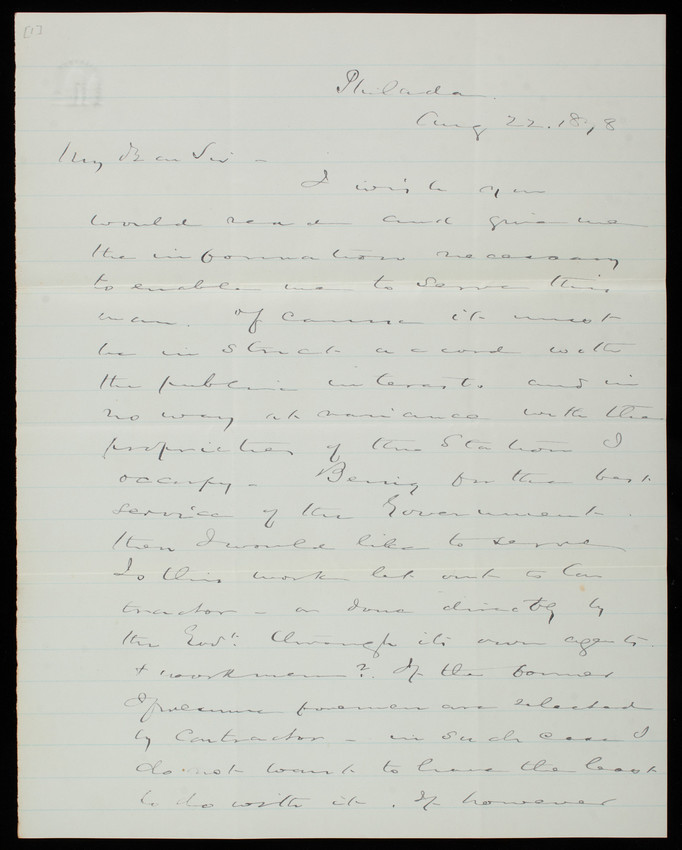 [1]
Philada.
Aug 22. 1878
My Dear Sir -
I wish you
would read and give me
the information necessary
to enable me to serve this
man. Of course it must
be in strict accord with
the public interests and in
no way at variance with the
proprieties of the Station I
occupy - Being for the best
service of the Government.
then I would like to serve
Is this work let out to Con
tractor - or done directly by
the Govt. through its own agents
+ workmen? If the former
I presume foremen are selected
by Contractor - in such case I
do not want to have the least
to do with it. If however